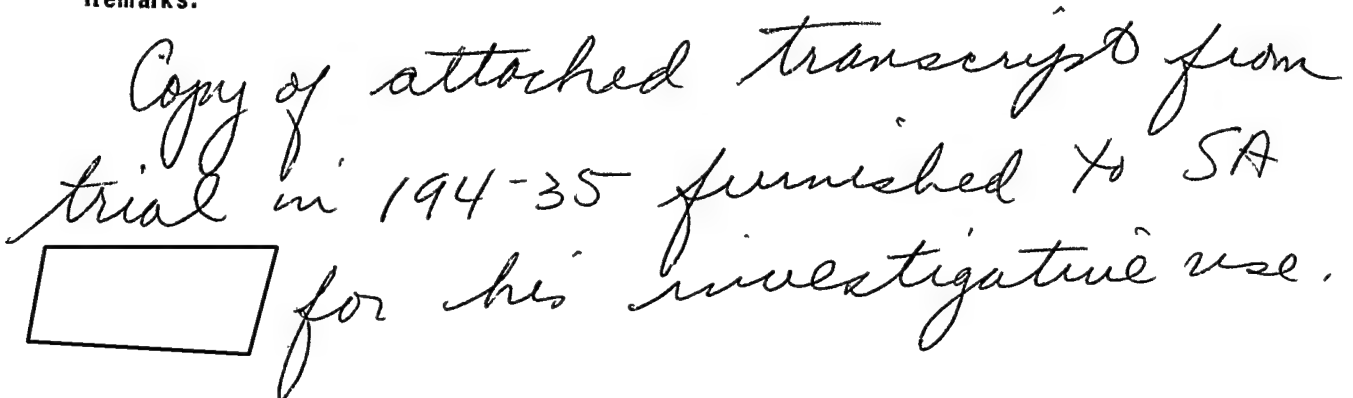 Remarks:
Copy of attached transcript from
trial in 194-35 furnished to SA
for his investigative use.